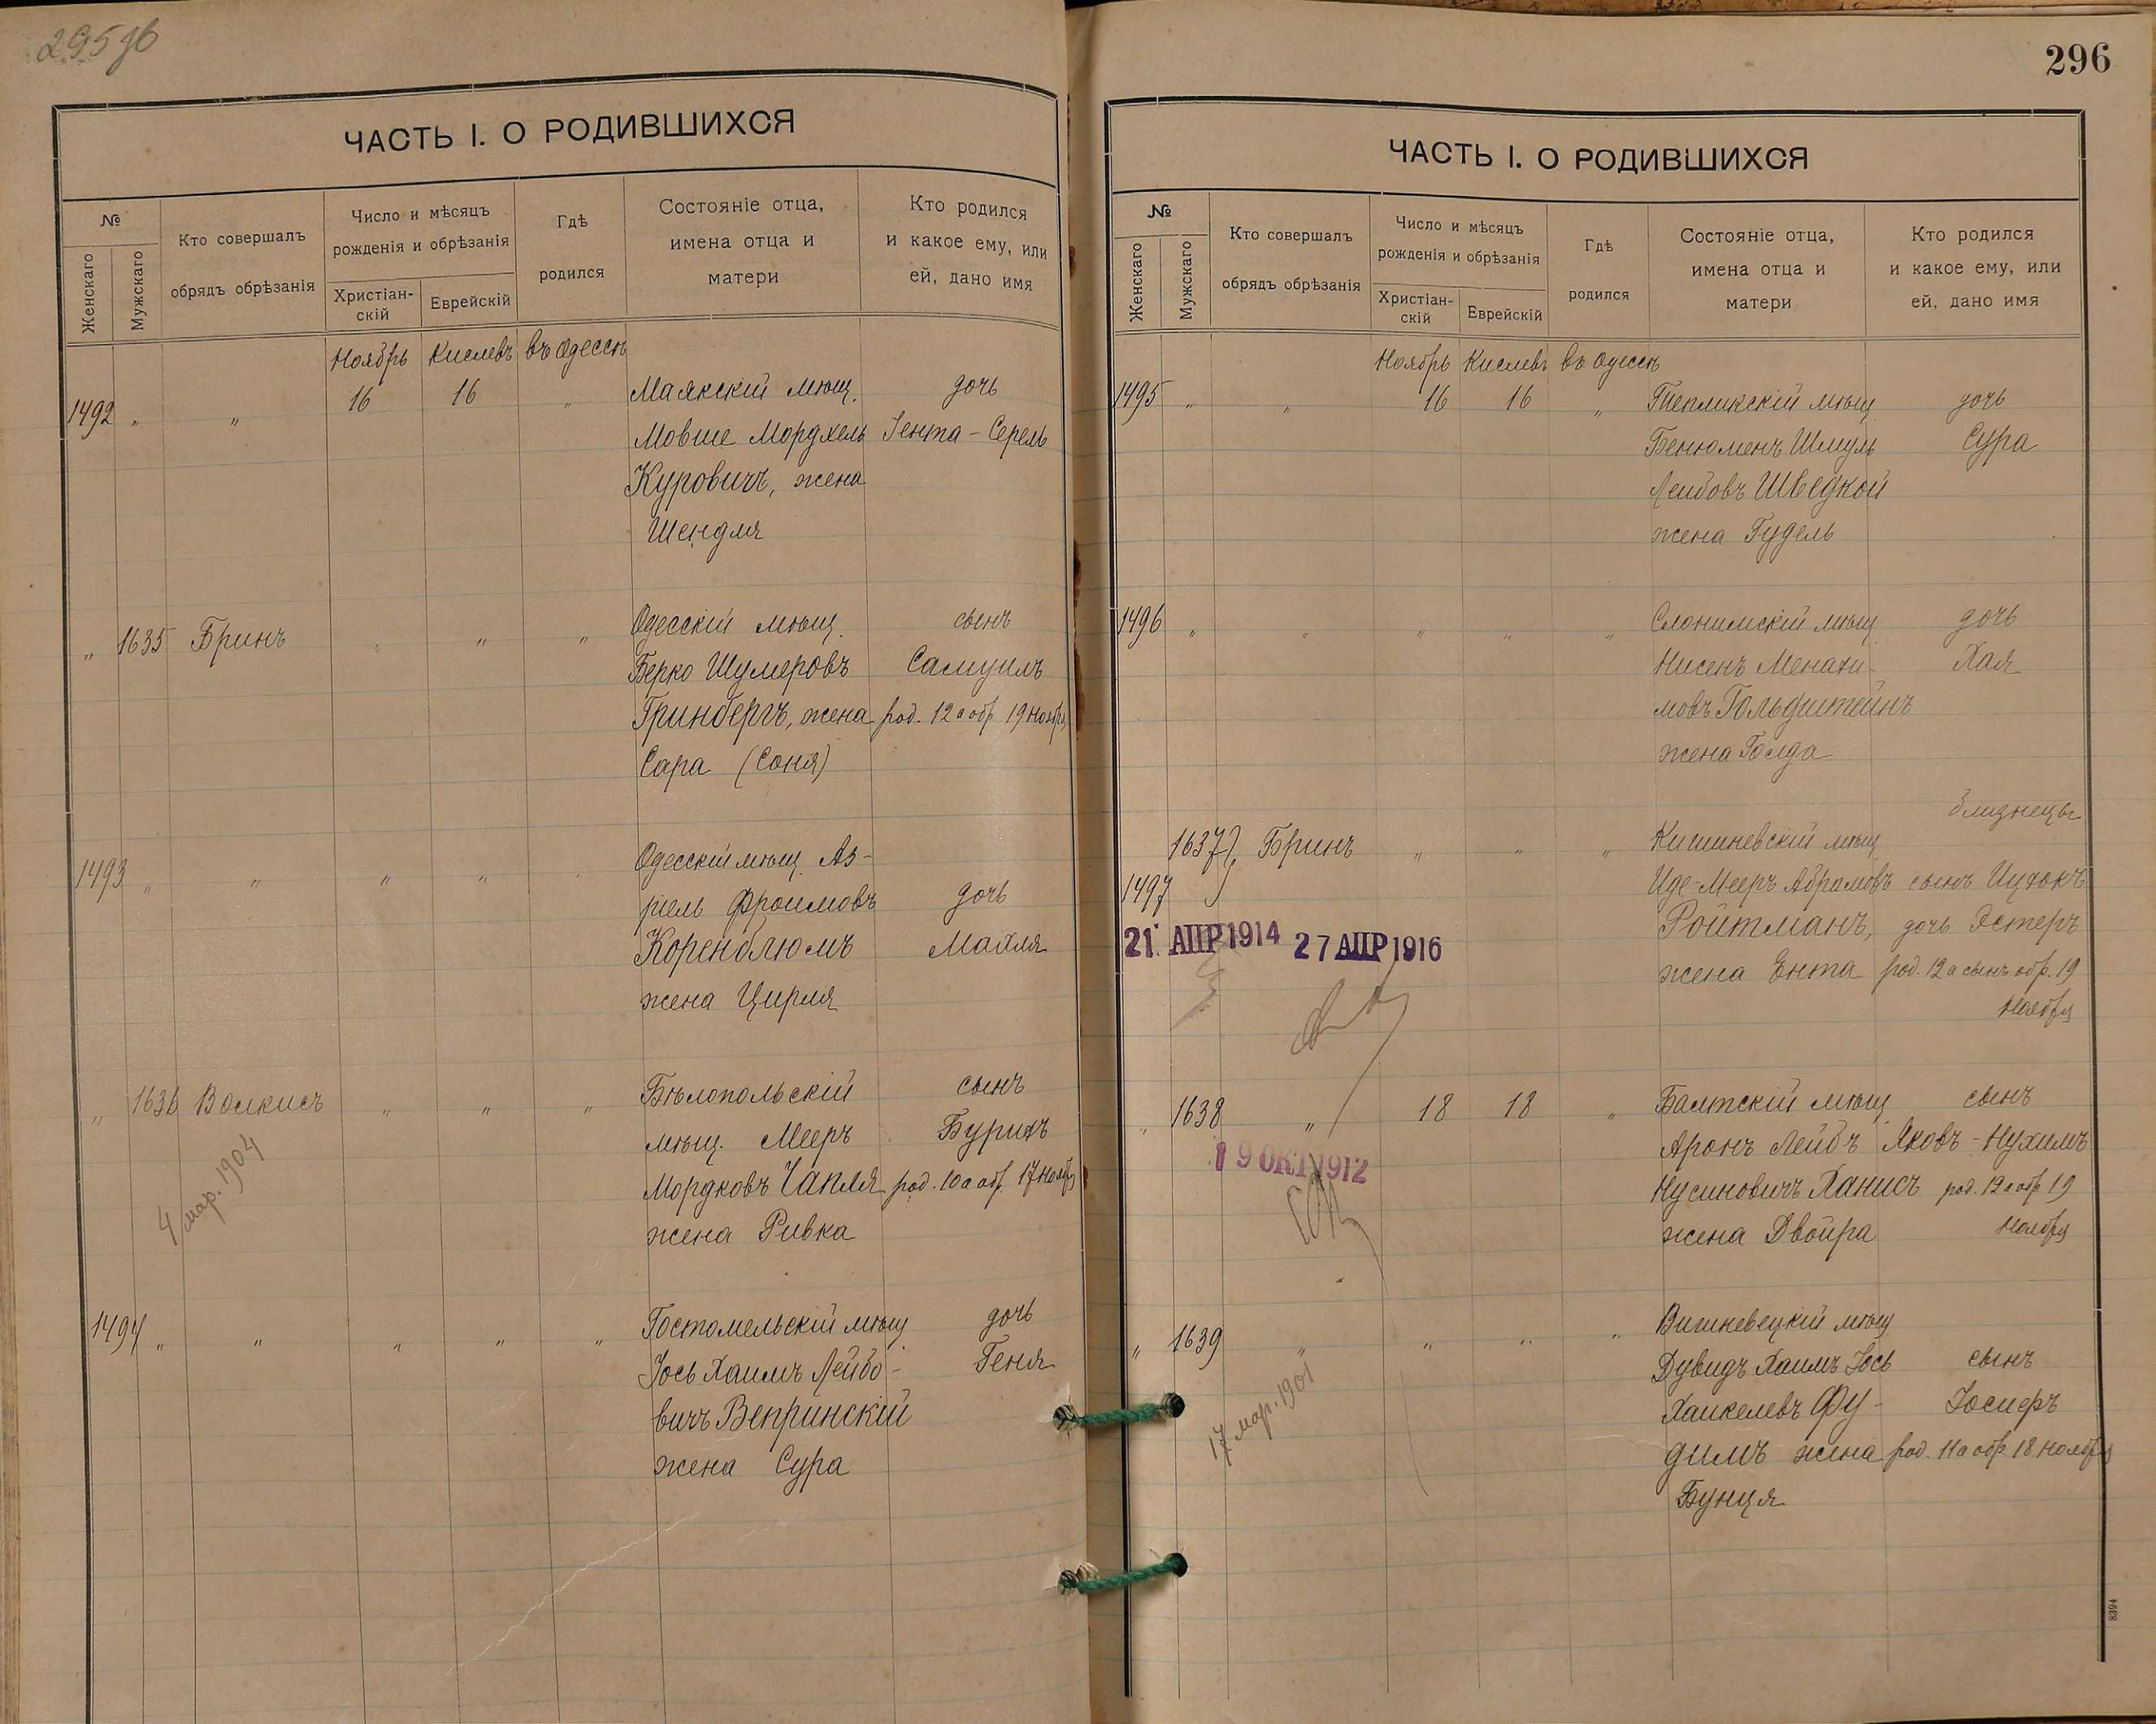 296
ЧАСТЬ I. О РОДИВШИХСЯ
№
Женскаго
Мужскаго
Кто совершалъ
обрядъ обрѣзанія
Число и мѣсяцъ
рожденія и обрѣзанія
Христіан-
скій
Еврейскій
Гдѣ
родился
Состояніе отца,
имена отца и
матери
Кто родился
и какое ему, или
ей, дано имя
Ноябрь Кислевъ въ Одессѣ
1492 " " 16 16 " Маякскій мѣщ. дочь
Мовше Мордхель Іента-Серель
Куровичъ, жена
Шендля
" 1635 Бринъ " " " Одесскій мѣщ. сынъ
Берко Шумеровъ Самуилъ
Гринбергъ, жена род. 12 а обр. 19 Ноября
Сара (Соня)
1493 " " " " " Одесскій мѣщ. Аз-
ріель Фроимовъ дочь
Коренблюмъ Махля
жена Цирля
" 1636 Волкисъ " " " Бѣлопольскій сынъ
мѣщ. Мееръ Бурихъ
Мордковъ Чапля род. 10 а обр. 17 Ноября
жена Ривка
4 мар. 1904
1494 " " " " " Гостомельскій мѣщ дочь
Іось Хаимъ Лейбо- Геня
вичъ Вепринскій
жена Сура
ЧАСТЬ I. О РОДИВШИХСЯ
№
Женскаго
Мужскаго
Кто совершалъ
обрядъ обрѣзанія
Число и мѣсяцъ
рожденія и обрѣзанія
Христіан-
скій
Еврейскій
Гдѣ
родился
Состояніе отца,
имена отца и
матери
Кто родился
и какое ему, или
ей, дано имя
Ноябрь Кислевъ въ Одессѣ
1495 " " 16 16 " Тепликскій мѣщ дочь
Бенюменъ Шмуль Сура
Лейбовъ Шведкой
жена Гудель
1496 " " " " " Слонимскій мѣщ дочь
Нисенъ Менахи- Хая
мовъ Гольдштейнъ
жена Голда
близнецы
1637 Бринъ " " " Кишиневскій мѣщ
1497 Иде-Мееръ Абрамовъ сынъ Ицхокъ
Ройтманъ, дочь Эстеръ
21 АПР 1914 27 АПР 1916
жена Ента род. 12 а сынъ обр. 19
Ноября
" 1638 " 18 18 " Балтскій мѣщ сынъ
Аронъ Лейбъ Яковъ-Нухимъ
19 ОКТ 1912
Нусиновичъ Ханисъ род. 12 а обр. 19
жена Двойра Ноября
" 1639 " " " " Вишневецкій мѣщ
Дувидъ Хаимъ Іось сынъ
Хаикелевъ Фу- Іосиеръ
димъ жена род. 11 а обр. 18 Ноября
Бунця
17 мар. 1901
8394